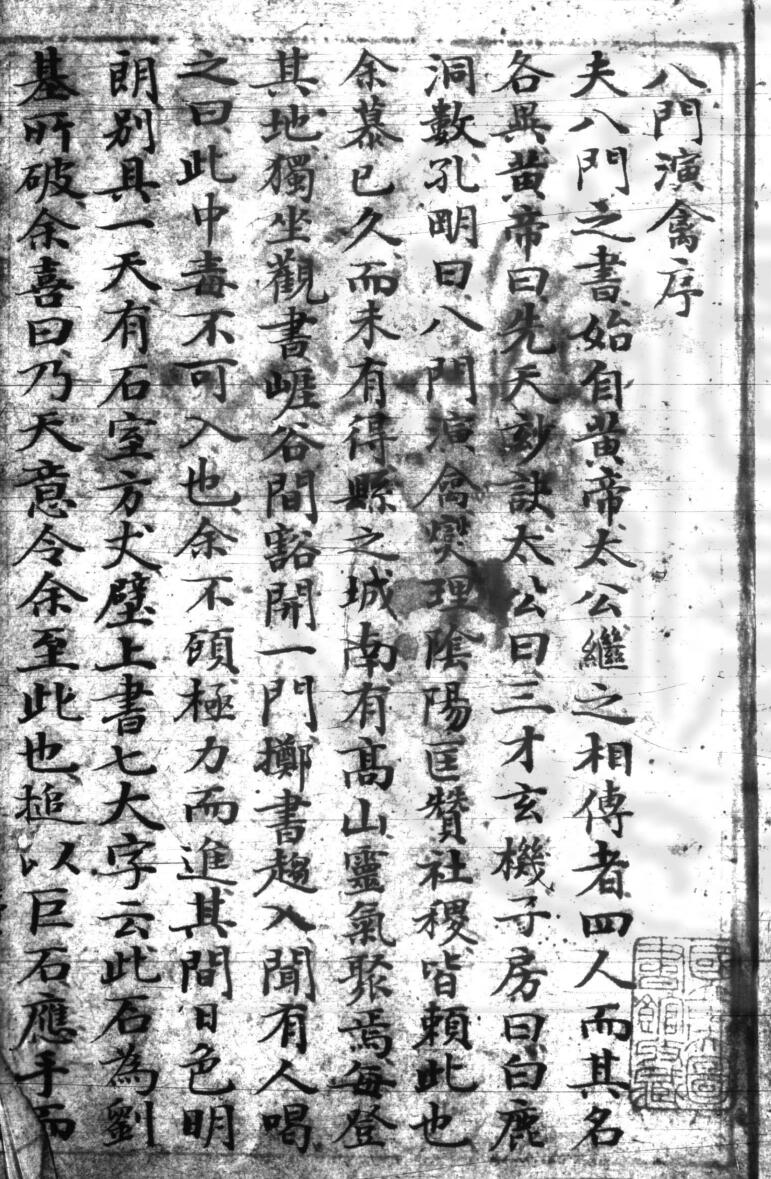 八門演禽序
夫八門之書始自黃帝太公繼之相傳者四人而其名
各異黃帝曰先天刻訣太公曰三才玄機子房曰白鹿
洞數孔明曰八門演禽燮理陰陽匡贊社稷皆賴此也
余慕已久而未有得縣之城南有高山靈氣聚焉每登
其地獨坐觀書崕谷間豁開一門擲書趨入聞有人喝
之曰此中毒不可入也余不顧極力而進其間日色明
朗別具一天有石室方丈壁上書七大字云此石為劉
基所破余喜曰乃天意令余至此也搥以巨石應手而